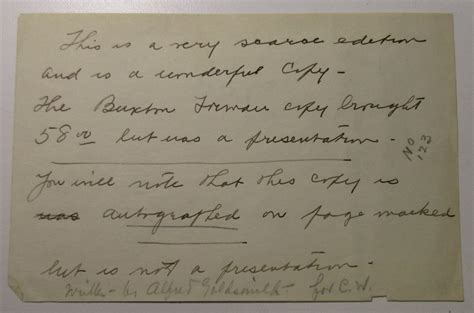 This is a very scarce edition
and is a wonderful copy -
The Buxton Forman copy brought
58.00 but was a presentation -
No 123
You will note that this copy is
was autographed on page marked
but is not a presentation -
Written - by Alfred Goldsmith - for C.W.